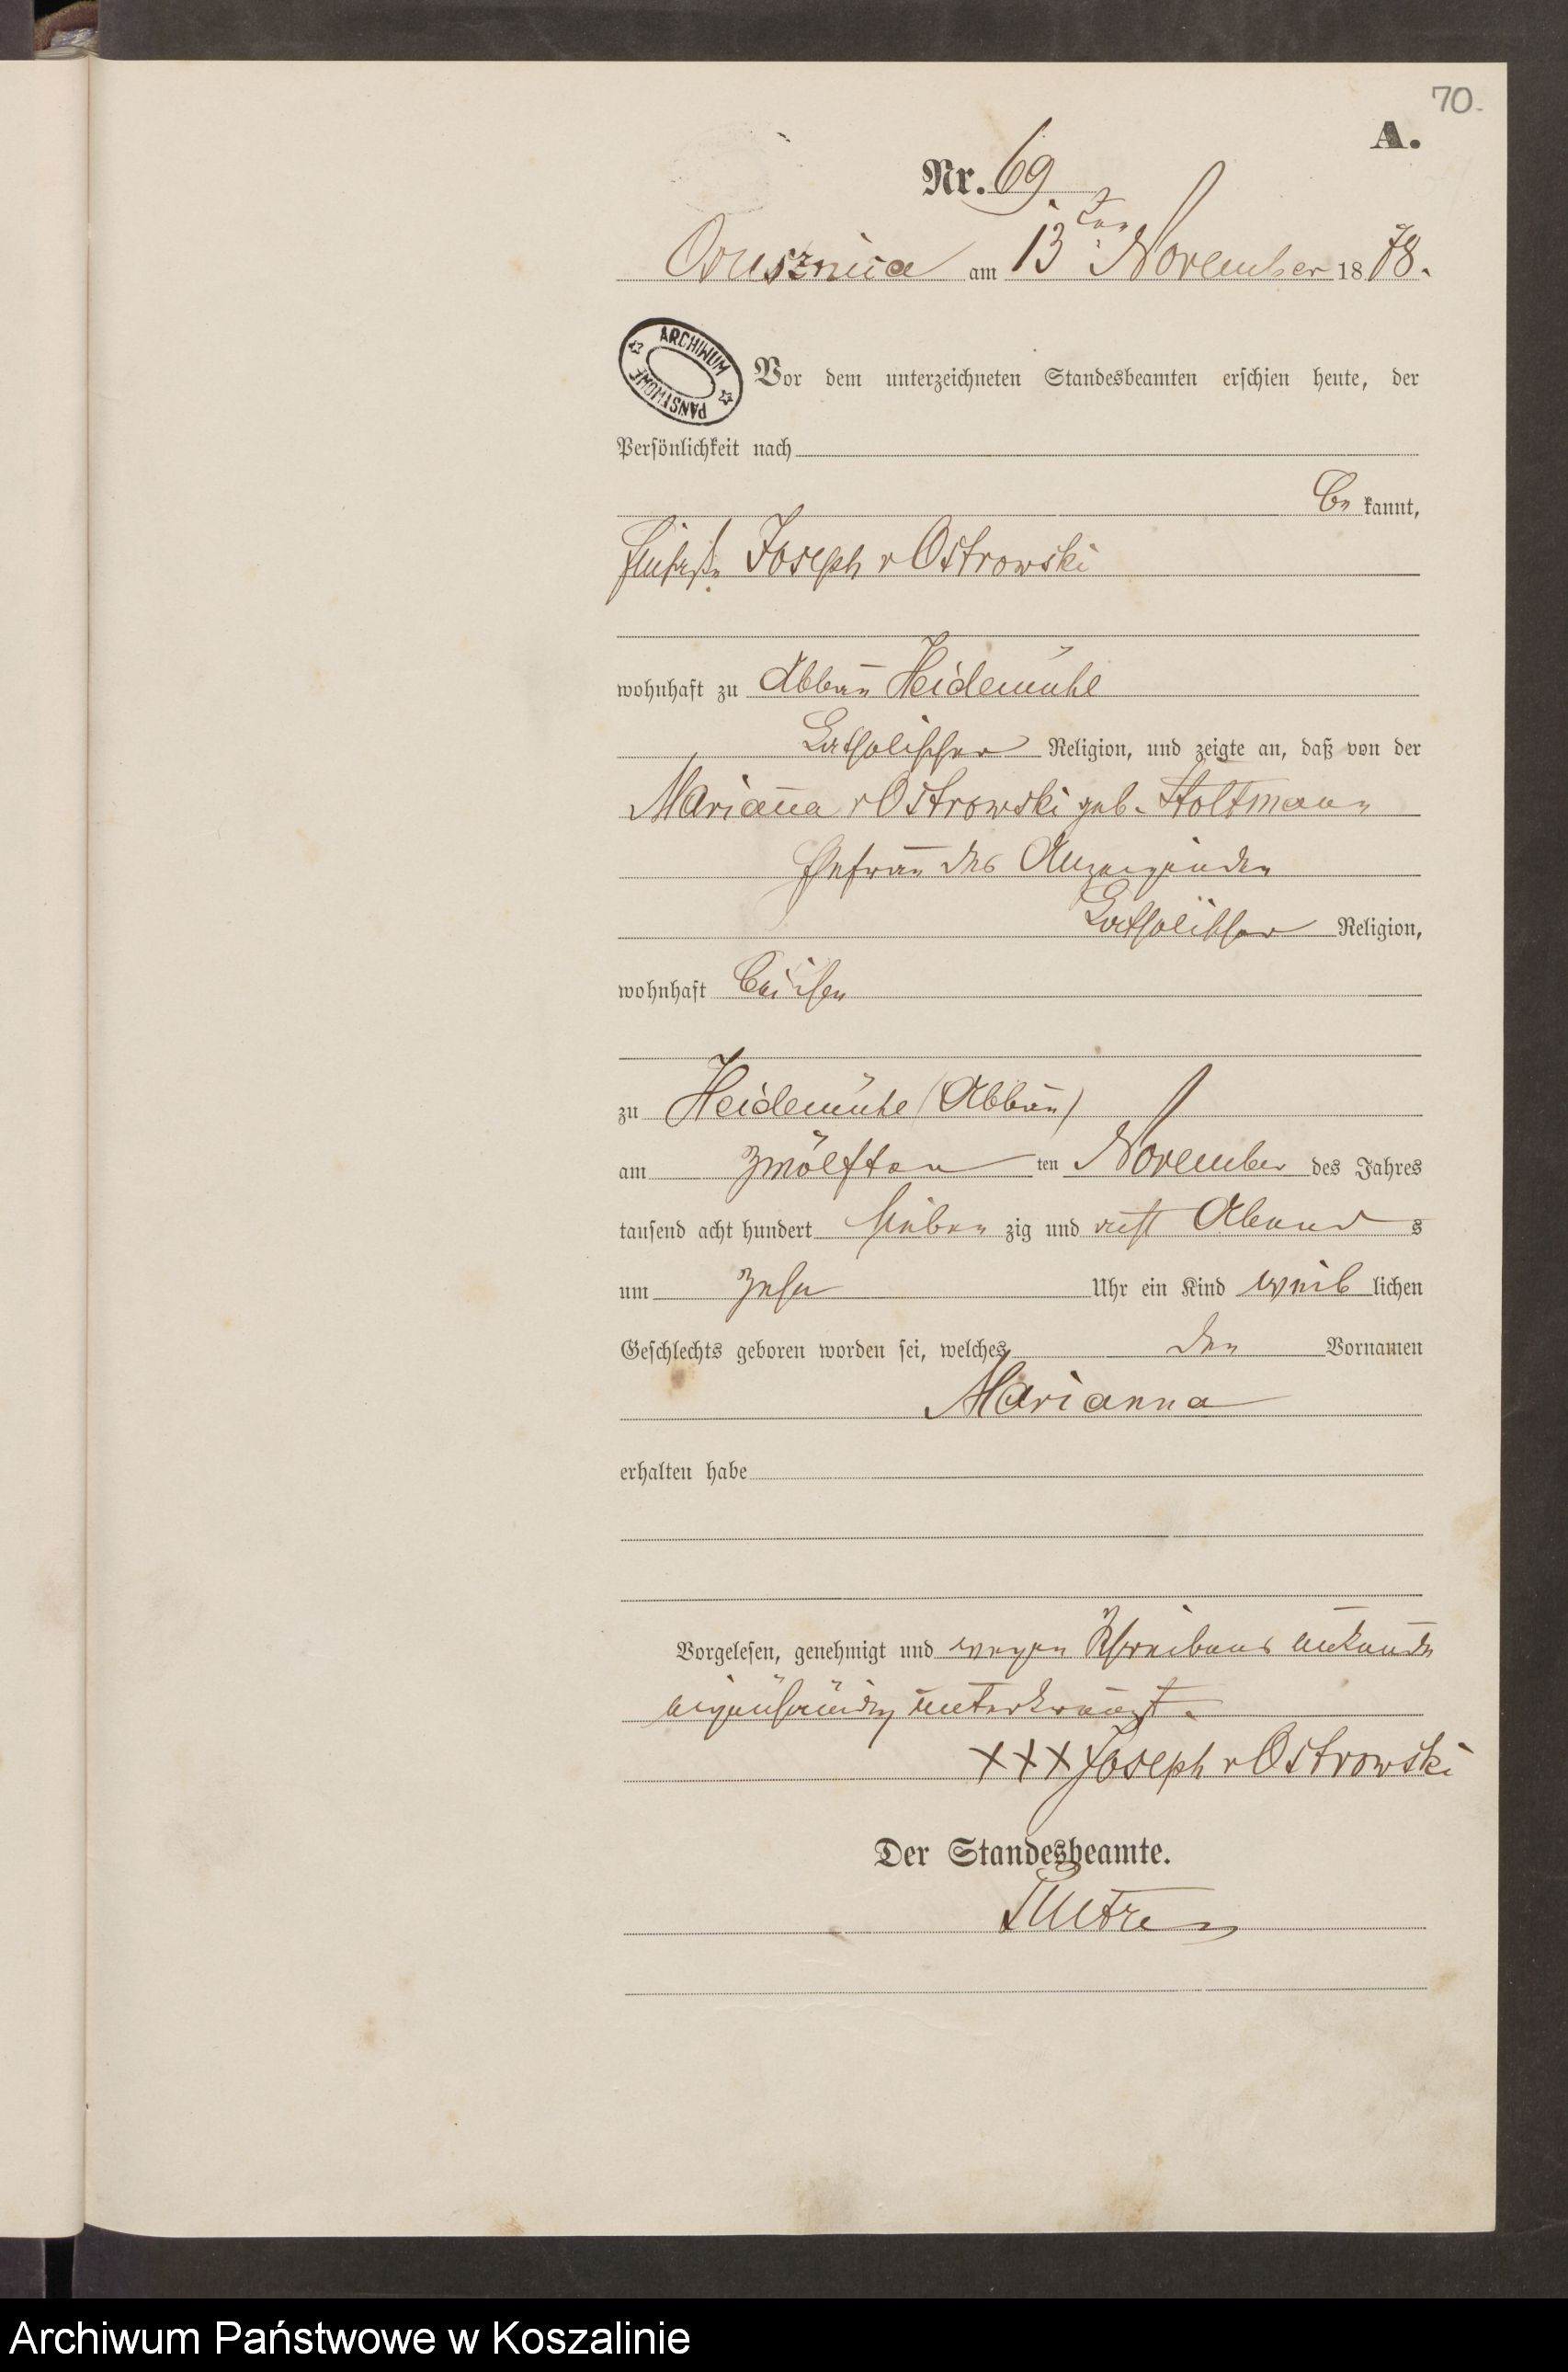 70.
A.
Nr. 69.
Ossusznica am 13ten November 1878.
ARCHIWUM PAŃSTWOWE
Vor dem unterzeichneten Standesbeamten erschien heute, der
Persönlichkeit nach
be kannt,
Joseph v Ostrowski
wohnhaft zu Abbau Heidemühl
katholischer Religion, und zeigte an, daß von der
Marianna v Ostrowski geb. Stoltmann
Ehefrau des Anzeigenden
katholischer Religion,
wohnhaft bei ihm
zu Heidemühl (Abbau)
am zwölften ten November des Jahres
tausend acht hundert sieben zig und acht Abend s
um zehn Uhr ein Kind weib lichen
Geschlechts geboren worden sei, welches den Vornamen
Marianna
erhalten habe
Vorgelesen, genehmigt und wegen Schreibens unkunde
eigenhändig unterkreuzt.
+++ Joseph v Ostrowski
Der Standesbeamte.
Archiwum Państwowe w Koszalinie